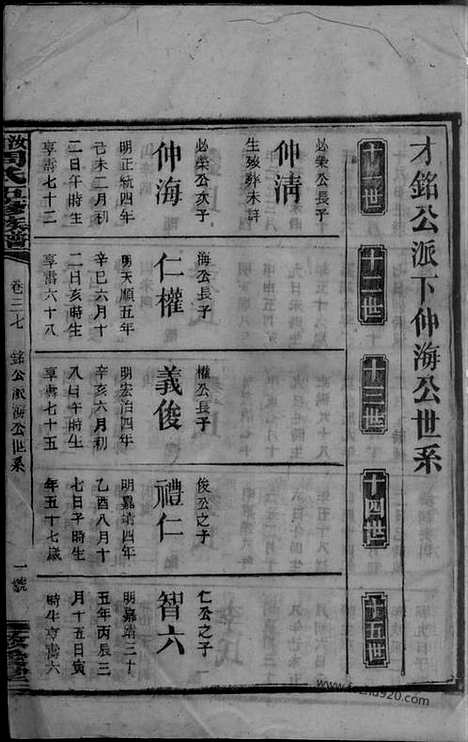 才銘公派下仲海公世系
十一世
十二世
十三世
十四世
十五世
必榮公長子
仲清
生歿葬未詳
必榮公次子
仲海
明正統四年
己未二月初
二日午時生
享壽七十二
海公長子
仁權
明天順五年
辛巳六月十
二日亥時生
享壽六十八
權公長子
義俊
明宏治四年
辛亥六月初
八日午時生
享壽七十五
俊公之子
禮仁
明嘉靖四年
乙酉八月十
七日子時生
年五十七歲
仁公之子
智六
明嘉靖三十
五年丙辰三
月十五日寅
時生享壽六
周氏五修族譜
卷三七
銘公派海公世系
一號